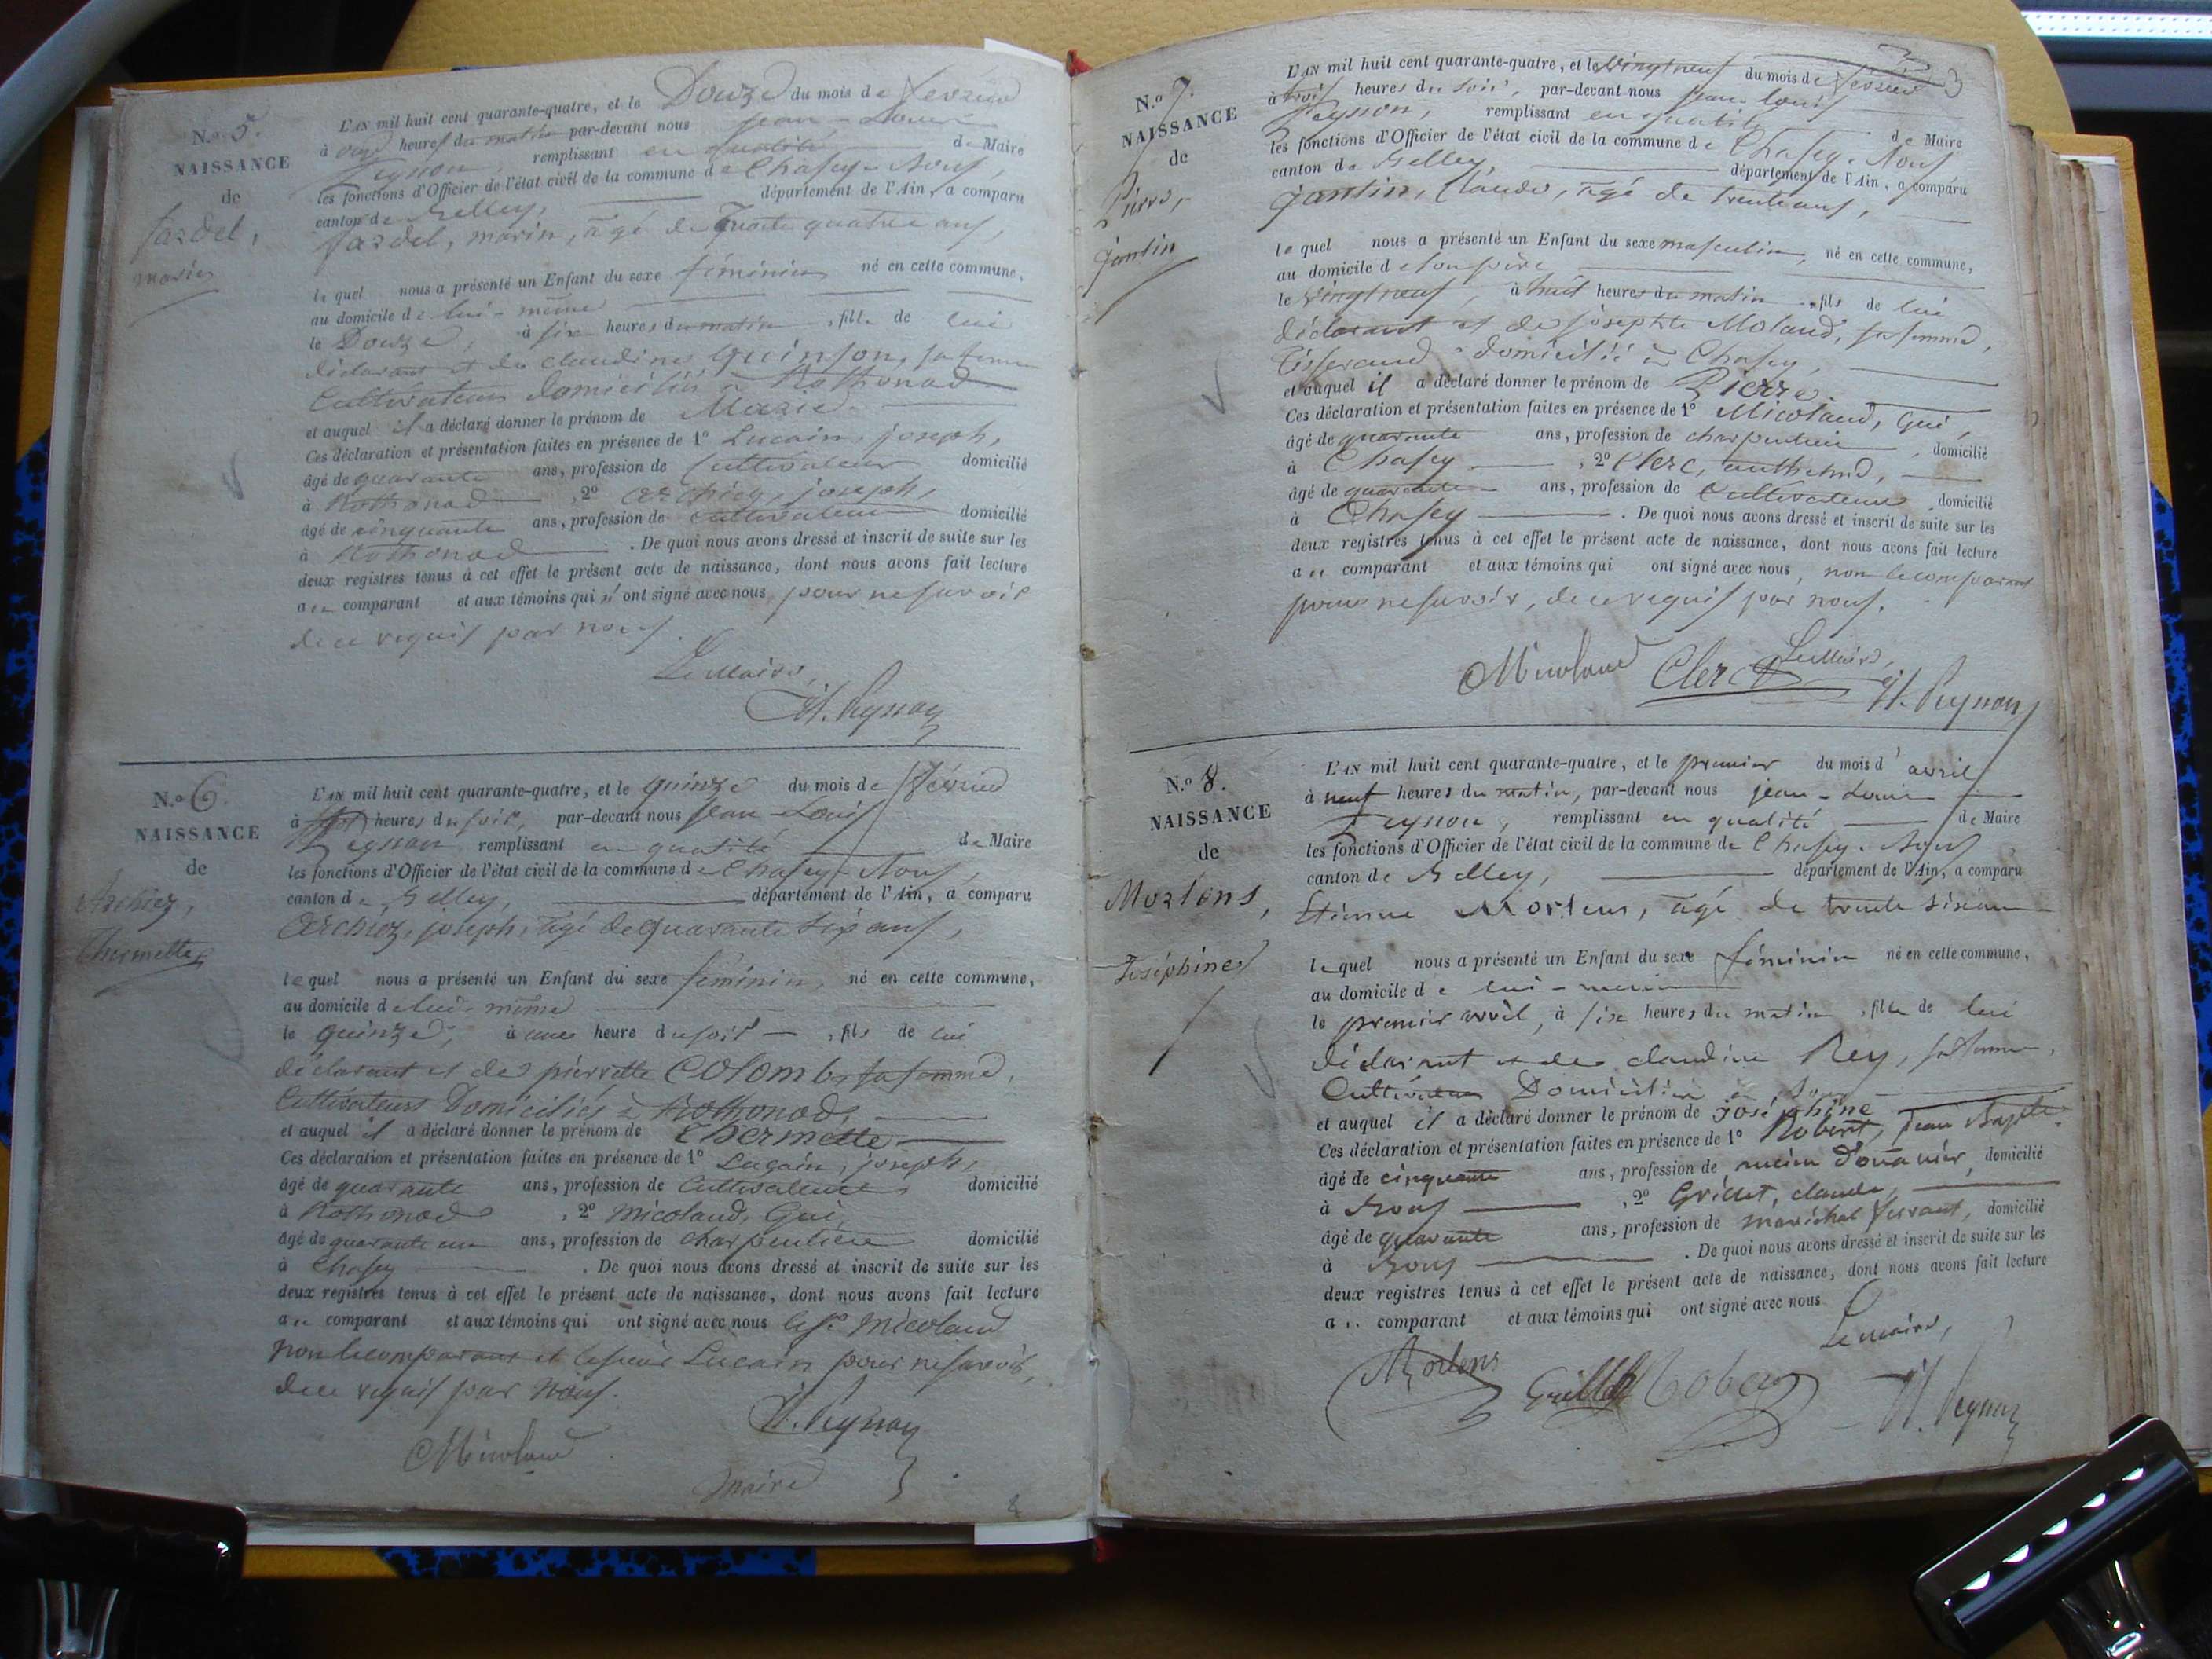 N.o 5.
NAISSANCE
de
fardel,
marie
L'AN mil huit cent quarante-quatre, et le Douze du mois de février
à onze heures du matin par-devant nous jean-Louis
Peysson, remplissant en qualité de Maire
les fonctions d'Officier de l'état civil de la commune de Chasey-Bons,
canton de Belley, département de l'Ain, a comparu
fardel, marin, âgé de trente quatre ans,
lequel nous a présenté un Enfant du sexe féminin né en cette commune,
au domicile de lui-même
le Douze, à six heures du matin, fille de lui
déclarant et de claudine quinson, sa femme
Cultivateurs domiciliés à Rothonod
et auquel il a déclaré donner le prénom de Marie.
Ces déclaration et présentation faites en présence de 1o Lucain, joseph,
âgé de quarante ans, profession de Cultivateur domicilié
à Rothonod, 2o archiez, joseph,
âgé de cinquante ans, profession de cultivateur domicilié
à Rothonod. De quoi nous avons dressé et inscrit de suite sur les
deux registres tenus à cet effet le présent acte de naissance, dont nous avons fait lecture
au comparant et aux témoins qui n'ont signé avec nous, pour ne savoir
de ce requis par nous.
Le Maire,
Peysson
N.o 6.
NAISSANCE
de
Archiez,
Thermette
L'AN mil huit cent quarante-quatre, et le quinze du mois de février
à heures du soir, par-devant nous jean-Louis
Peysson remplissant en qualité de Maire
les fonctions d'Officier de l'état civil de la commune de Chasey-Bons,
canton de Belley, département de l'Ain, a comparu
archiez, joseph, âgé de quarante six ans,
lequel nous a présenté un Enfant du sexe féminin, né en cette commune,
au domicile de lui-même
le quinze, à une heure du soir, fils de lui
déclarant et de pierrette Colomb, sa femme,
Cultivateurs Domiciliés à Rothonod,
et auquel il a déclaré donner le prénom de thermette
Ces déclaration et présentation faites en présence de 1o Lucain, joseph,
âgé de quarante ans, profession de Cultivateur domicilié
à Rothonod, 2o micoland, Gui,
âgé de quarante un ans, profession de charpentier domicilié
à Chasey. De quoi nous avons dressé et inscrit de suite sur les
deux registres tenus à cet effet le présent acte de naissance, dont nous avons fait lecture
au comparant et aux témoins qui ont signé avec nous le sr micoland
non le comparant et le sieur Lucain pour ne savoir,
de ce requis par nous.
Peysson
Micoland
maire
N.o 7.
NAISSANCE
de
Pierre,
jantin
3
L'AN mil huit cent quarante-quatre, et le vingt neuf du mois de février
à trois heures du soir, par-devant nous jean louis
Peysson, remplissant en qualité de Maire
les fonctions d'Officier de l'état civil de la commune de Chasey-Bons
canton de Belley département de l'Ain, a comparu
jantin, Claude, âgé de trente ans,
lequel nous a présenté un Enfant du sexe masculin, né en cette commune,
au domicile de son père
le vingt neuf, à huit heures du matin fils de lui
déclarant et de josephte Moland, sa femme,
tisserand domicilié à Chasey,
et auquel il a déclaré donner le prénom de Pierre.
Ces déclaration et présentation faites en présence de 1o Micoland, Gui,
âgé de quarante ans, profession de charpentier, domicilié
à Chasey, 2o Clerc, anthelmd,
âgé de quarante ans, profession de Cultivateur domicilié
à Chasey. De quoi nous avons dressé et inscrit de suite sur les
deux registres tenus à cet effet le présent acte de naissance, dont nous avons fait lecture
au comparant et aux témoins qui ont signé avec nous, non le comparant
pour ne savoir, de ce requis par nous.
Le Maire,
Micoland Clerc Peysson
N.o 8.
NAISSANCE
de
Mortens,
Joséphine
L'AN mil huit cent quarante-quatre, et le premier du mois d'avril
à neuf heures du matin, par-devant nous jean-Louis
Peysson, remplissant en qualité de Maire
les fonctions d'Officier de l'état civil de la commune de Chasey-Bons
canton de Belley, département de l'Ain, a comparu
Etienne Mortens, âgé de trente six ans
lequel nous a présenté un Enfant du sexe féminin né en cette commune,
au domicile de lui-même
le premier avril, à six heures du matin, fille de lui
déclarant et de claudine Rey, sa femme,
Cultivateurs Domiciliés à Bons
et auquel il a déclaré donner le prénom de joséphine
Ces déclaration et présentation faites en présence de 1o Robert, jean Baptte
âgé de cinquante ans, profession de ancien douanier, domicilié
à Bons, 2o Grillet, claude,
âgé de quarante ans, profession de maréchal ferrant, domicilié
à Bons. De quoi nous avons dressé et inscrit de suite sur les
deux registres tenus à cet effet le présent acte de naissance, dont nous avons fait lecture
au comparant et aux témoins qui ont signé avec nous
Le maire,
Mortens Grillet Robert Peysson